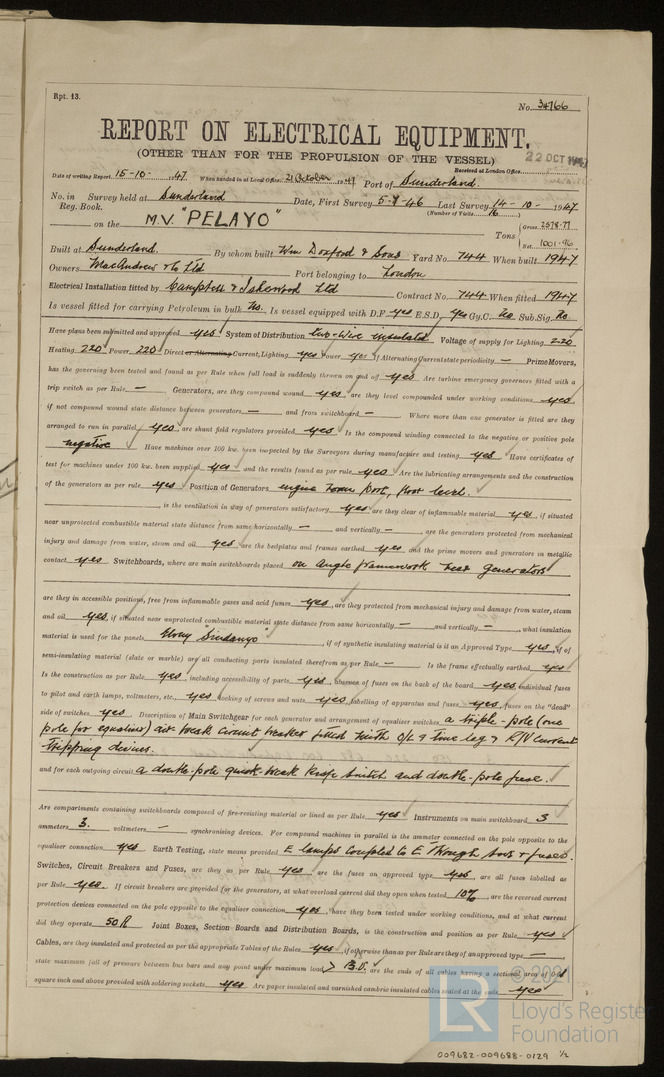 Rpt. 13.
No. 34766
REPORT ON ELECTRICAL EQUIPMENT.
(OTHER THAN FOR THE PROPULSION OF THE VESSEL)
22 OCT 1947
Received at London Office
Date of writing Report 15-10- 1947 When handed in at Local Office 21 October 1947 Port of Sunderland
No. in Survey held at Sunderland Date, First Survey 5-9-46 Last Survey 14-10-1947
Reg. Book. (Number of Visits 16)
on the M.V. "PELAYO" Tons { Gross 2378.77
Net 1001.96
Built at Sunderland. By whom built Wm Doxford & Sons Yard No. 744 When built 1947
Owners MacAndrew & Co Ltd Port belonging to London
Electrical Installation fitted by Campbell & Isherwood Ltd Contract No. 744 When fitted 1947
Is vessel fitted for carrying Petroleum in bulk No. Is vessel equipped with D.F. yes E.S.D. yes Gy.C. No Sub.Sig. No
Have plans been submitted and approved yes System of Distribution two-wire insulated Voltage of supply for Lighting 220
Heating 220 Power 220 Direct or Alternating Current, Lighting yes Power yes If Alternating Current state periodicity — Prime Movers,
has the governing been tested and found as per Rule when full load is suddenly thrown on and off yes Are turbine emergency governors fitted with a
trip switch as per Rule — Generators, are they compound wound yes, are they level compounded under working conditions yes,
if not compound wound state distance between generators — and from switchboard — Where more than one generator is fitted are they
arranged to run in parallel yes, are shunt field regulators provided yes Is the compound winding connected to the negative or positive pole
negative Have machines over 100 kw. been inspected by the Surveyors during manufacture and testing yes Have certificates of
test for machines under 100 kw. been supplied yes and the results found as per rule yes Are the lubricating arrangements and the construction
of the generators as per rule yes Position of Generators engine room Port, floor level.
, is the ventilation in way of generators satisfactory yes are they clear of inflammable material yes, if situated
near unprotected combustible material state distance from same horizontally — and vertically —, are the generators protected from mechanical
injury and damage from water, steam and oil yes are the bedplates and frames earthed yes and the prime movers and generators in metallic
contact yes Switchboards, where are main switchboards placed on angle framework near generators
are they in accessible positions, free from inflammable gases and acid fumes yes, are they protected from mechanical injury and damage from water, steam
and oil yes, if situated near unprotected combustible material state distance from same horizontally — and vertically —, what insulation
material is used for the panels "Sindanyo", if of synthetic insulating material is it an Approved Type yes, if of
semi-insulating material (slate or marble) are all conducting parts insulated therefrom as per Rule — Is the frame effectually earthed yes
Is the construction as per Rule yes, including accessibility of parts yes, absence of fuses on the back of the board yes, individual fuses
to pilot and earth lamps, voltmeters, etc. yes locking of screws and nuts yes, labelling of apparatus and fuses yes, fuses on the "dead"
side of switches yes. Description of Main Switchgear for each generator and arrangement of equaliser switches a triple-pole (one
pole for equaliser) air break circuit breaker fitted with O/L & time lag & R/V current
tripping devices.
and for each outgoing circuit a double-pole quick-break knife switch and double-pole fuse.
Are compartments containing switchboards composed of fire-resisting material or lined as per Rule yes Instruments on main switchboard 3
ammeters 3. voltmeters — synchronising devices. For compound machines in parallel is the ammeter connected on the pole opposite to the
equaliser connection yes Earth Testing, state means provided E lamps coupled to E through & fuses.
Switches, Circuit Breakers and Fuses, are they as per Rule yes are the fuses on approved type yes, are all fuses labelled as
per Rule yes. If circuit breakers are provided for the generators, at what overload current did they open when tested 10%, are the reversed current
protection devices connected on the pole opposite to the equaliser connection yes, have they been tested under working conditions, and at what current
did they operate 50 A Joint Boxes, Section Boards and Distribution Boards, is the construction and position as per Rule yes
Cables, are they insulated and protected as per the appropriate Tables of the Rules yes, if otherwise than as per Rule are they of an approved type —
state maximum fall of pressure between bus bars and any point under maximum load , are the ends of all cables having a sectional area of
square inch and above provided with soldering sockets yes Are paper insulated and varnished cambric insulated cables sealed at the ends yes
© 2021
LR
Lloyd's Register
Foundation
009682-009688-0129 1/2